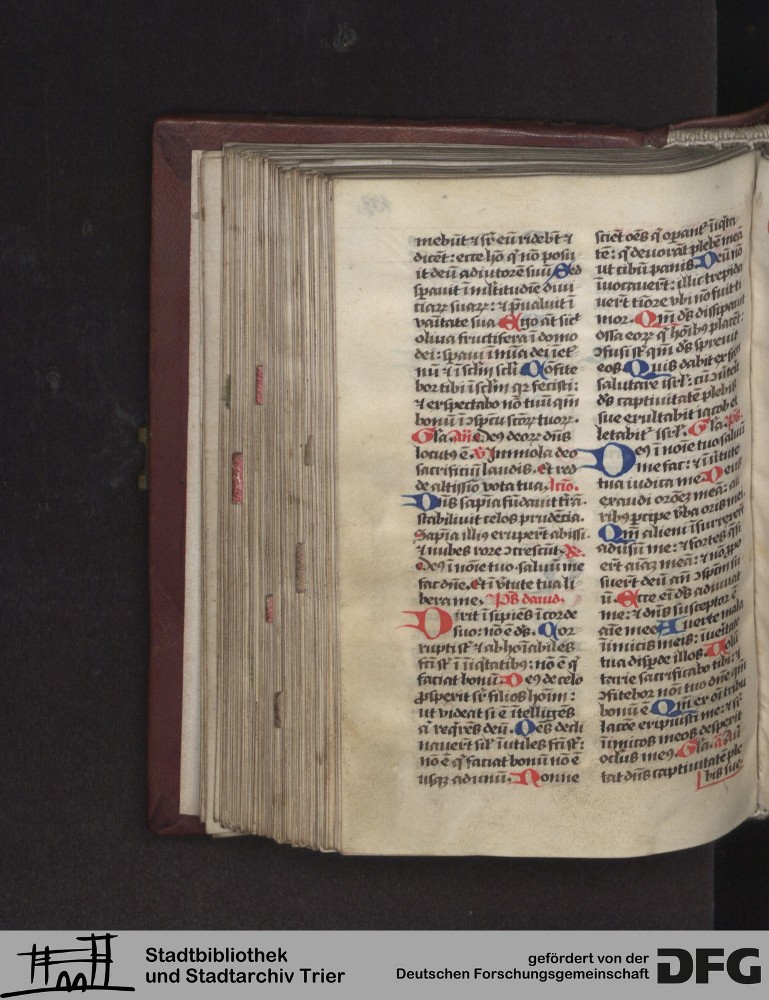 mebūt ⁊ sꝑ eū ridebūt ⁊
dicēt: ecce hō q̄ nō posu
it deū adiutorē suū Sed
sperauit ī mltitudīe diui
ciaꝝ suaꝝ: ⁊ p̄ualuit ī
vanitate sua Ego āt sic̄
oliua fructifera ī domo
dei: speraui ī mīa dei ī et̄
nū ⁊ ī sclm̄ scli Cōfite
bor tibi ī sclm̄ qꝛ fecisti:
⁊ exspectabo nō tuū qm̄
bonū ī ↄspctu scōꝝ tuoꝝ.
Gl̄a. Aīi. Deꝰ deoꝝ dn̄s
locutꝰ ē. V̄ Immola deo
sacrificiū laudis. Et red
de altissīo vota tua. lc̄io.
Dn̄s sapīa fūdauit t̄rā.
stabiliuit celos prudēcia.
Sapīa illiꝰ eruper̄t abissi.
⁊ nubes rore ↄcrescūt. R̄.
Deꝰ ī noīe tuo saluū me
fac dn̄e. Et ī v̄tute tua li
bera me. Ps̄ dauid.
Dixit īsipiēs ī corde
suo: nō ē ds̄. Cor
rupti st̄ ⁊ abhoīabiles
fc̄i st̄ ī īiq̄tatibꝰ: nō ē q̄
faciat bonū. Deꝰ de celo
ꝓspexit sꝑ filios hoīm:
ut videat si ē ītelligēs
aut req̄rēs deū. Oēs decli
nauer̄t sil̄ īutiles fc̄i st̄:
nō ē q̄ faciat bonū nō ē
usqꝫ ad unū. Nonne
sciēt oēs q̄ oꝑant̄ īiq̄ta
tē: q̄ deuorāt plebē meā
ut cibū panis Deū nō
īuocauer̄t: illic trepida
uer̄t tīore vbi nō fuit ti
mor. Qm̄ ds̄ dissipauit
ossa eoꝝ q̄ hoībꝰ placēt:
ↄfusi st̄ qm̄ ds̄ spreuit
eos Quis dabit ex syon
salutare isrl̄: cū ↄūtēit
ds̄ captiuitatē plebis
sue exultabit iacob et
letabit̄ isrl̄. Gl̄a. Ps̄.
Deꝰ ī noīe tuo saluū
me fac: ⁊ ī v̄tute
tua iudica me Deus
exaudi orōeꝫ meā: au
ribꝰ ꝑcipe v̄ba oris mei.
Qm̄ alieni īsurrexer̄t
adūsū me: ⁊ fortes q̄si
er̄t aīaꝫ meā: ⁊ nō ꝓpo
suer̄t deū an̄ ↄspctm̄ su
ū. Ecce eī ds̄ adiuuat
me: ⁊ dn̄s susceptor ē
aīe mee Auerte mala
īimicis meis: ī ueritate
tua disꝑde illos. Volū
tarie sacrificabo tibi: ⁊
ↄfitebor noī tuo dn̄e qm̄
bonū ē Qm̄ ex oī tribu
lacōe eripuisti me: ⁊ sꝑ
īimicos meos despexit
oclus meꝰ. Gl̄a. Aīi Au
tat dn̄s captiuitatē ple
bis sue.
Stadtbibliothek
und Stadtarchiv Trier
gefördert von der
Deutschen Forschungsgemeinschaft
DFG